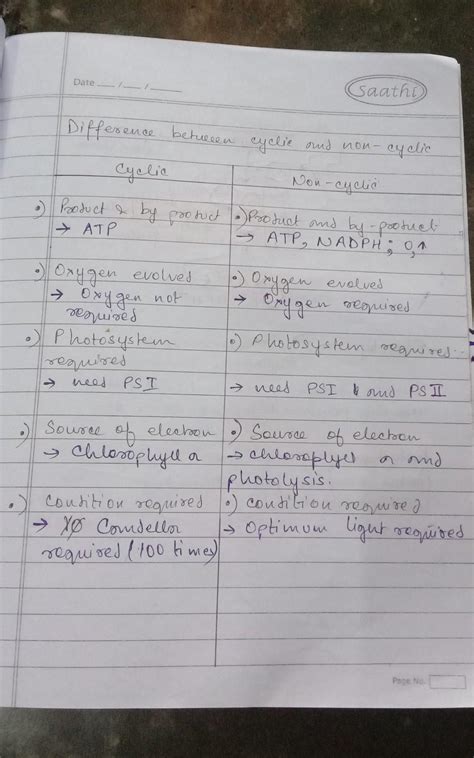 Date ___/___/___
Saathi
Difference between cyclic and non-cyclic
Cyclic
•) Product & by product
→ ATP
•) Oxygen evolved
→ Oxygen not
required
•) Photosystem
required
→ need PSI
•) Source of electron
→ Chlorophyll a
•) Condition required
→ Comdella
required (100 times)
Non-cyclic
•) Product and by-product
→ ATP, NADPH; O₂↑
•) Oxygen evolved
→ Oxygen required
•) Photosystem required
→ need PSI and PSII
•) Source of electron
→ chlorophyll a and
photolysis.
•) Condition required
→ Optimum light required
Page No.